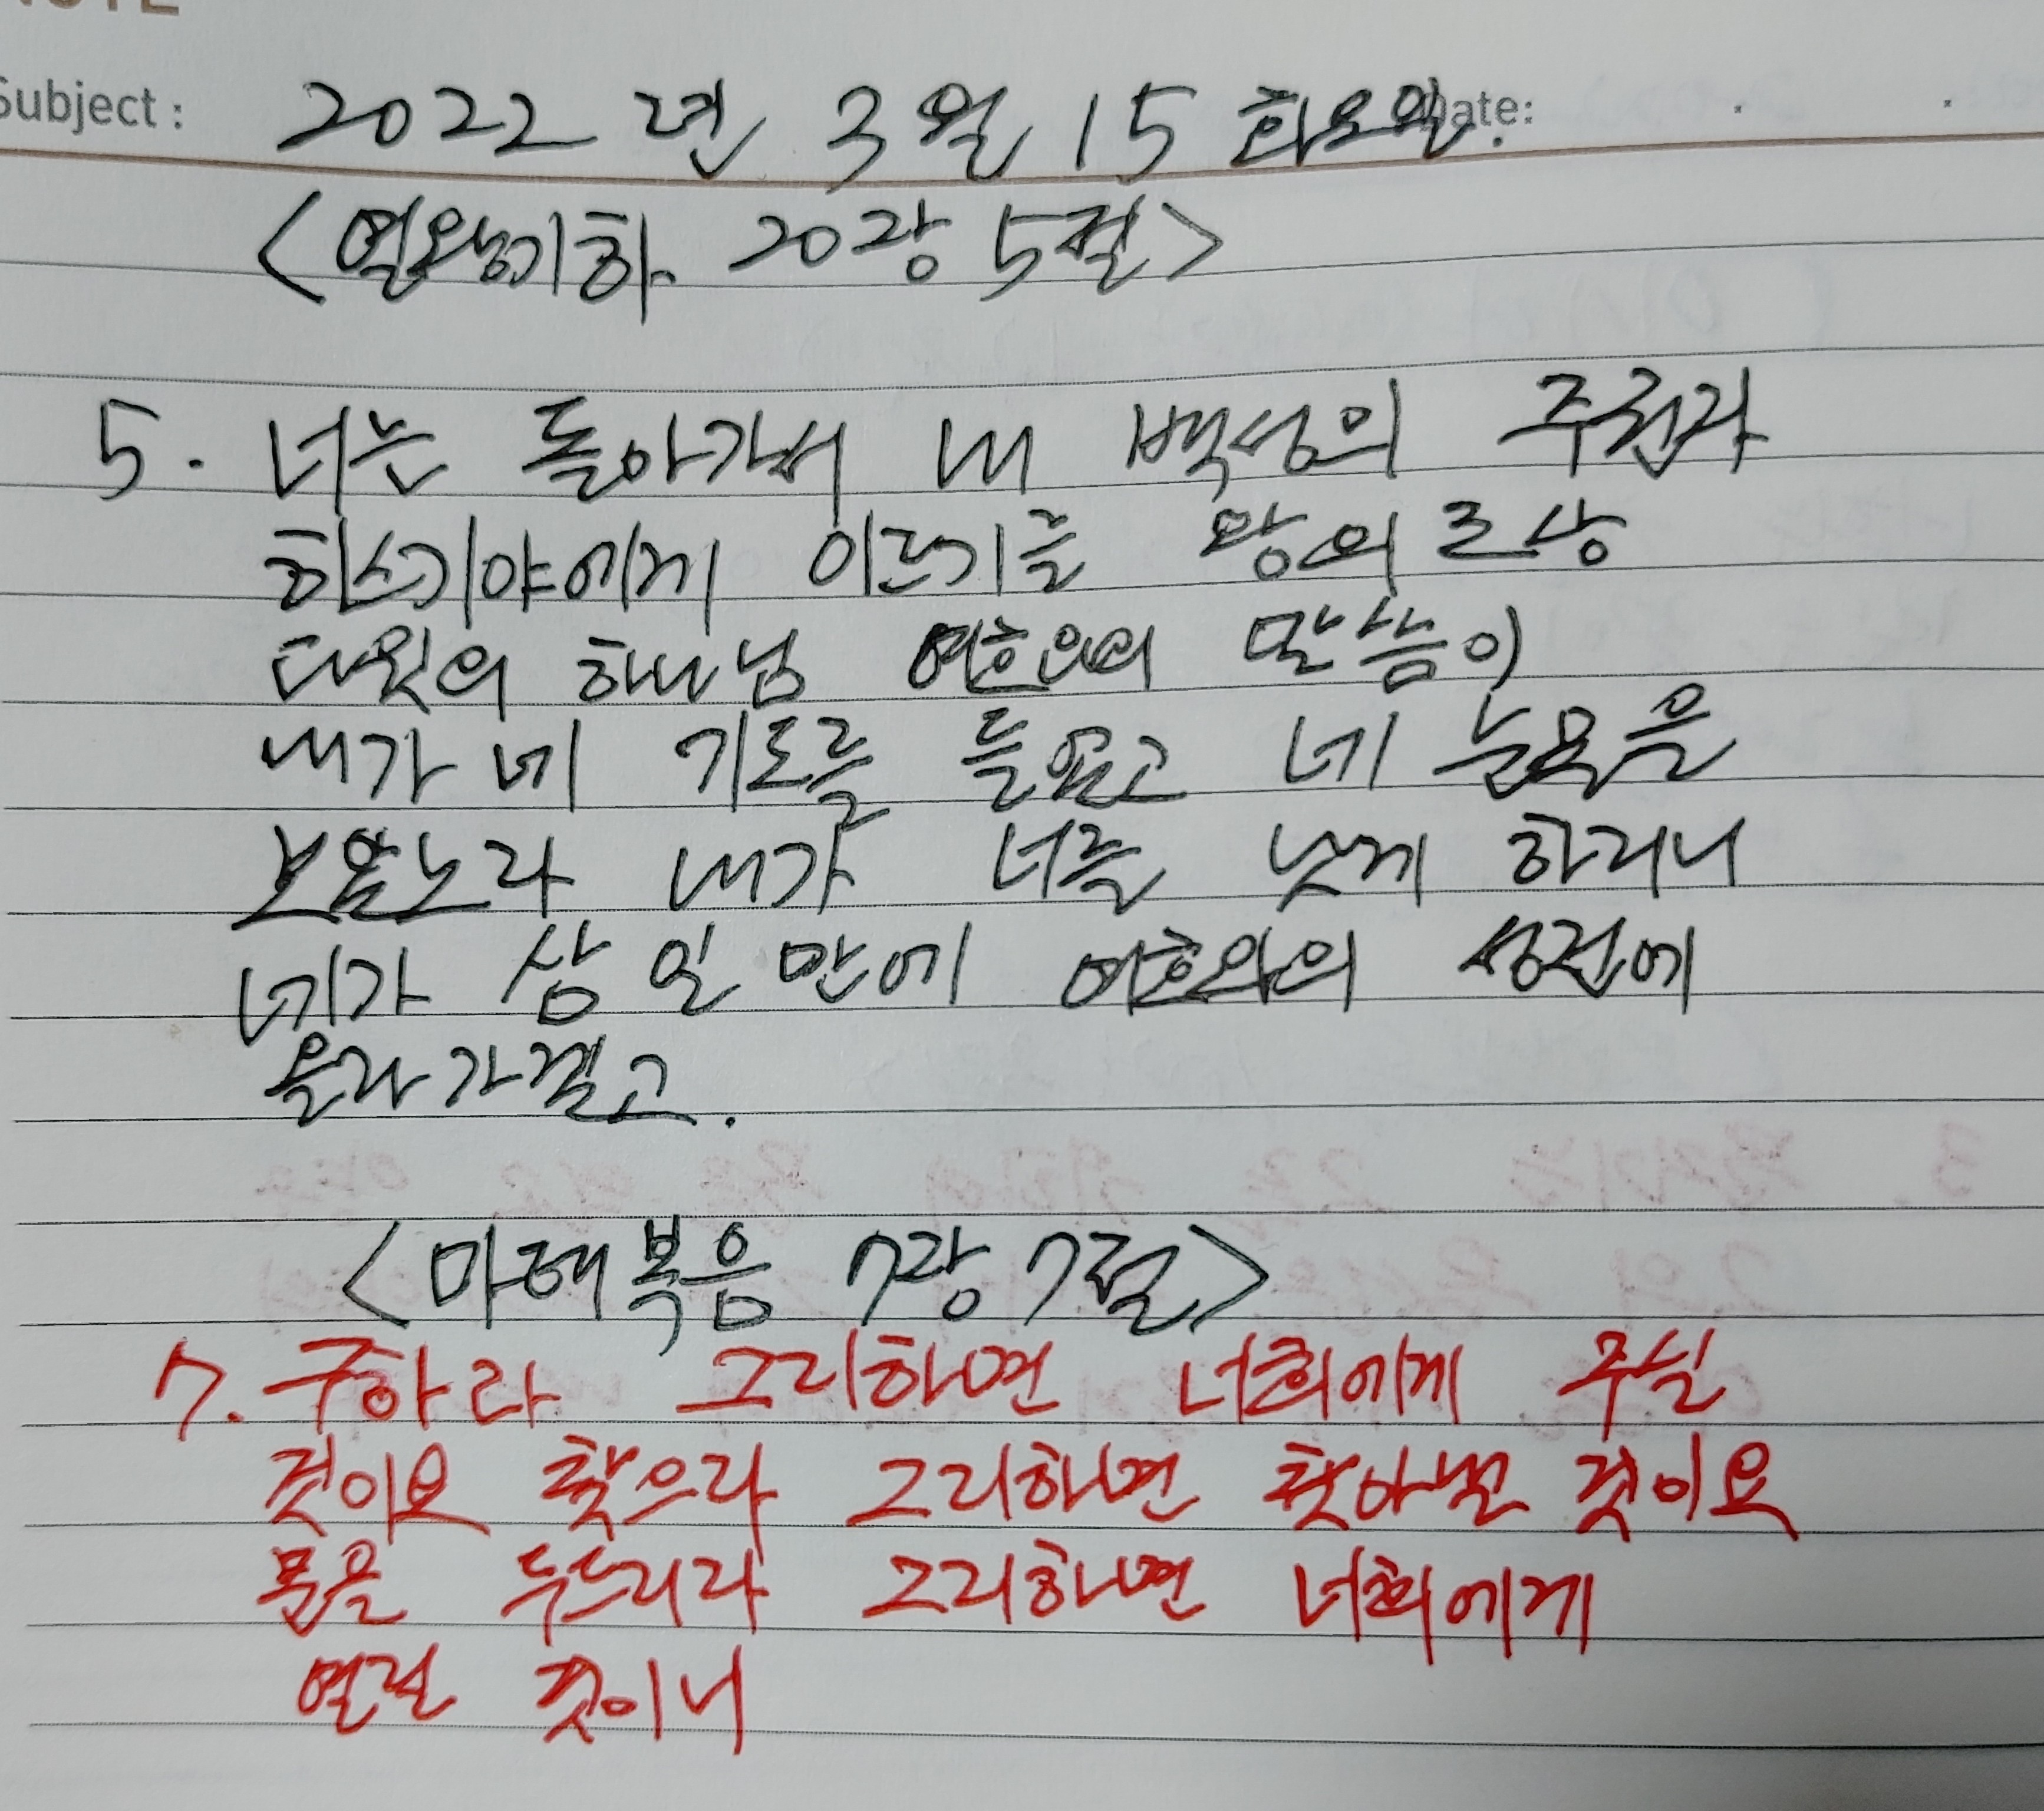 NOTE
Subject : 2022 년 3월 15 화요일. Date: . .
<열왕기하 20장 5절>
5. 너는 돌아가서 내 백성의 주권자
히스기야에게 이르기를 왕의 조상
다윗의 하나님 여호와의 말씀이
내가 네 기도를 들었고 네 눈물을
보았노라 내가 너를 낫게 하리니
네가 삼 일 만에 여호와의 성전에
올라가겠고.
<마태복음 7장 7절>
7. 구하라 그리하면 너희에게 주실
것이요 찾으라 그리하면 찾아낼 것이요
문을 두드리라 그리하면 너희에게
열릴 것이니